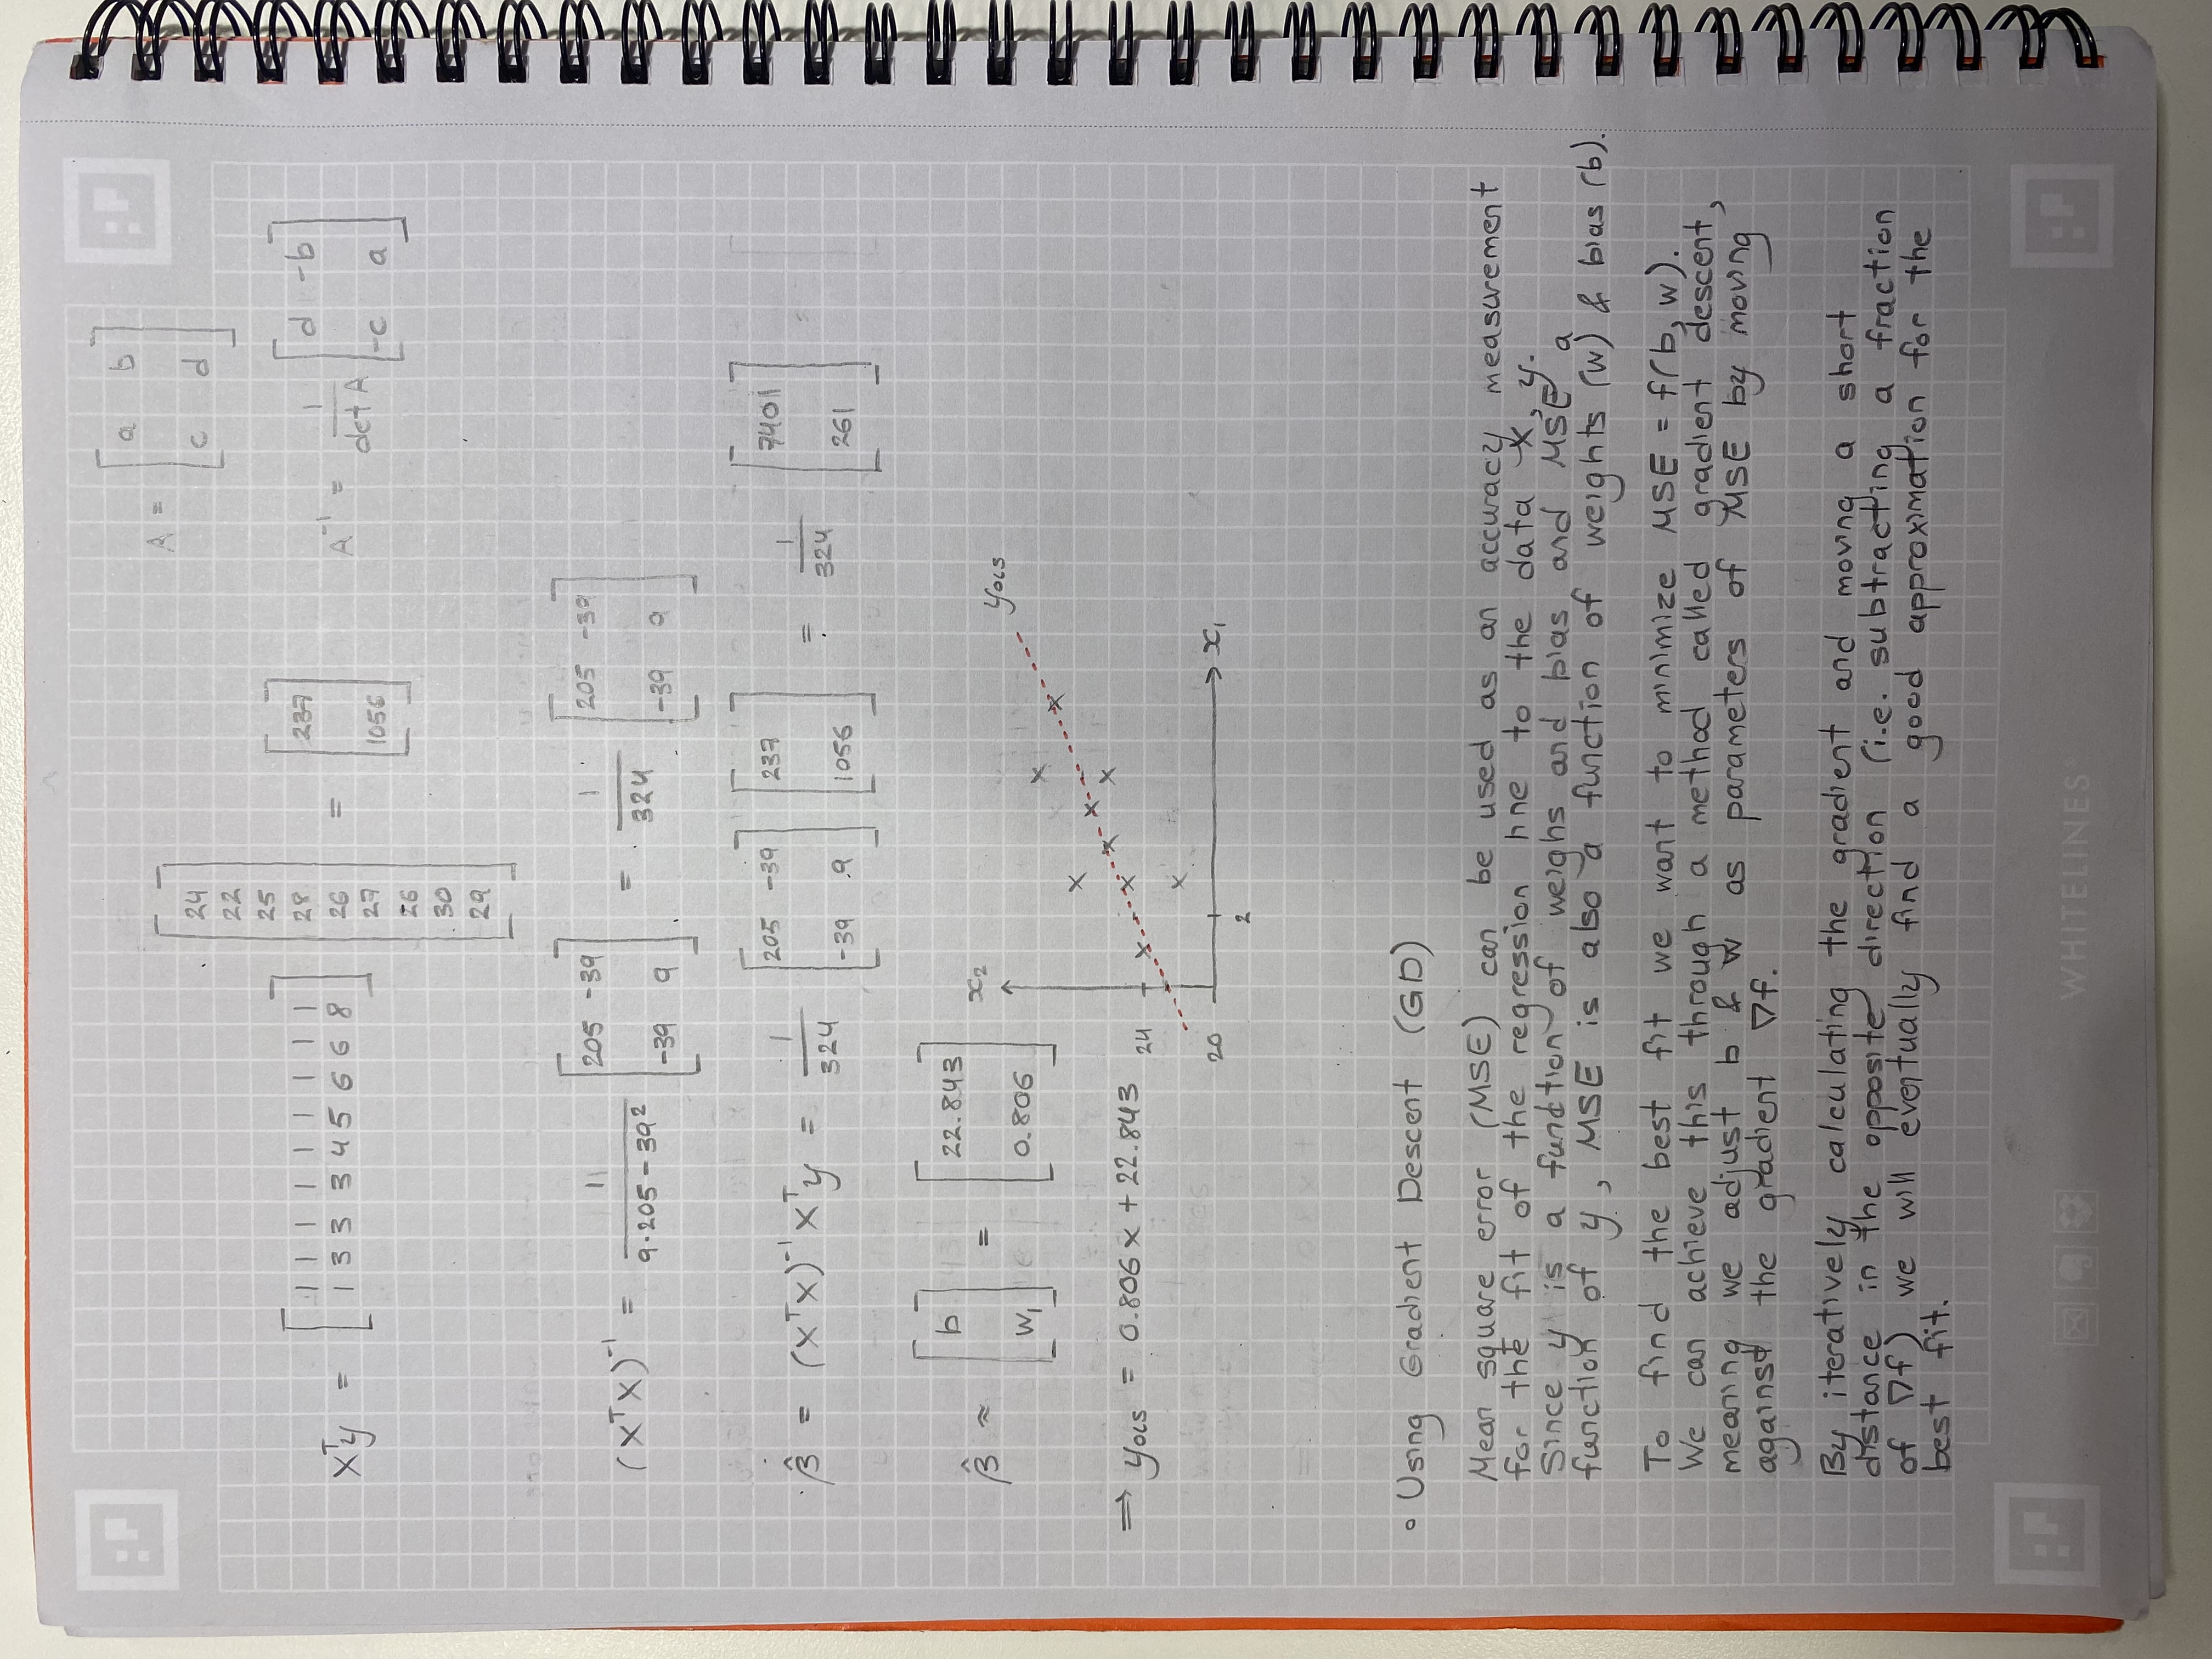 A = [ a b
c d ]
X^T y = [ 1 1 1 1 1 1 1 1 1
1 3 3 3 4 5 6 6 8 ] [ 24
22
25
28
26
27
26
30
29 ] = [ 237
1056 ]
A^-1 = 1/det A [ d -b
-c a ]
(X^T X)^-1 = 1/(9·205 - 39²) [ 205 -39
-39 9 ] = 1/324 [ 205 -39
-39 9 ]
β̂ = (X^T X)^-1 X^T y = 1/324 [ 205 -39
-39 9 ] [ 237
1056 ] = 1/324 [ 7401
261 ]
β̂ ≈ [ b
w₁ ] = [ 22.843
0.806 ]
x₂
yoLS
⇒ yoLS = 0.806x + 22.843
24
20
x₁
2
∘ Using Gradient Descent (GD)
Mean square error (MSE) can be used as an accuracy measurement
for the fit of the regression line to the data x, y.
Since y is a function of weighs and bias and MSE a
function of y, MSE is also a function of weights (w) & bias (b).
To find the best fit we want to minimize MSE = f(b, w).
We can achieve this through a method called gradient descent,
meaning we adjust b & w as parameters of MSE by moving
against the gradient ∇f.
By iteratively calculating the gradient and moving a short
distance in the opposite direction (i.e. subtracting a fraction
of ∇f) we will eventually find a good approximation for the
best fit.
WHITELINES